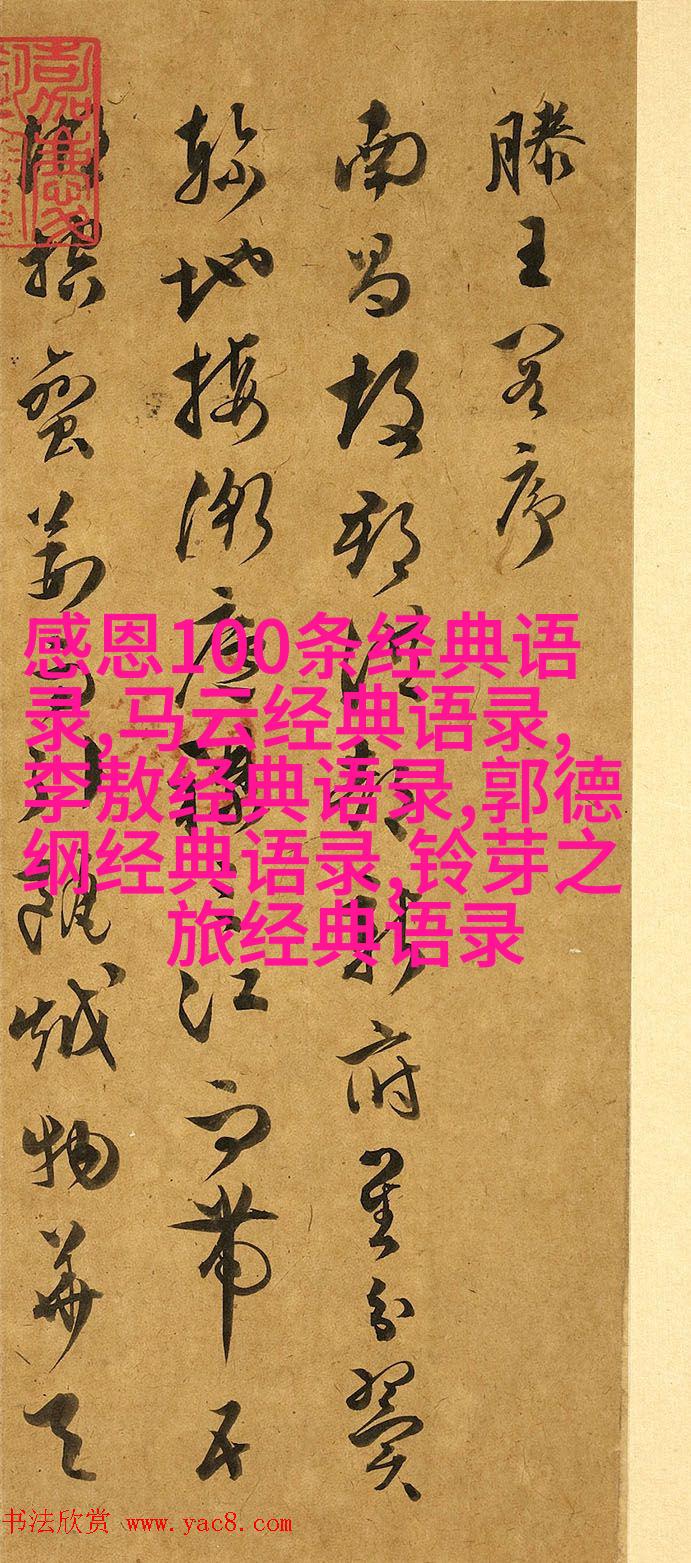 滕王閣序
南昌故郡洪都新府星分翼
軫地接衡廬襟三江而帶五
湖控蠻荊而引甌越物華天
感恩100条经典语
录,马云经典语录,
李敖经典语录,郭德
纲经典语录,铃芽之
旅经典语录
书法欣赏 www.yac8.com